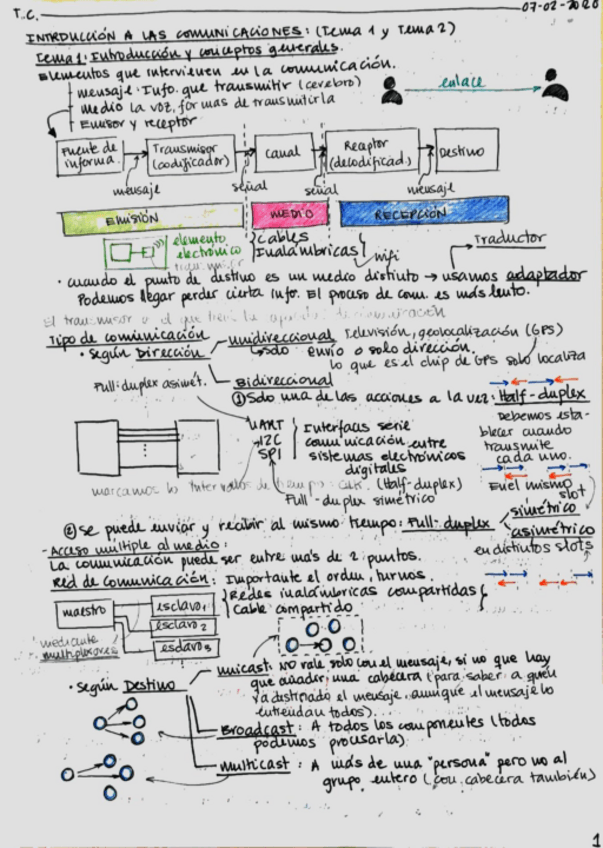 T.C. 07-02-2020
INTRDUCCIÓN A LAS COMUNICACIONES: (Tema 1 y Tema 2)
Tema 1: Introducción y conceptos generales.
Elementos que intervienen en la comunicación.
mensaje: Info. que transmitir (cerebro)
Medio la voz, formas de transmitirla
Emisor y receptor
enlace
Fuente de informa.
Transmisor (codificador)
canal
Receptor (decodificad.)
Destino
mensaje señal señal mensaje
EMISIÓN MEDIO RECEPCIÓN
elemento electrónico
Cables
Inalámbricas
wifi
Traductor
· cuando el punto de destino es un medio distinto → usamos adaptador
Podemos llegar perder cierta info. El proceso de com. es más lento.
Tipo de comunicación
· Según Dirección
Unidireccional Televisión, geolocalización (GPS)
solo envío o solo dirección.
lo que es el chip de GPS solo localiza
Full-duplex asimét.
Bidireccional
① Solo una de las acciones a la vez: Half-duplex
Debemos establecer cuando transmite cada uno.
UART
I2C
SPI
Interfaces serie
comunicación entre
sistemas electrónicos
digitales
(Half-duplex)
Full-duplex simétrico
En el mismo slot
② Se puede enviar y recibir al mismo tiempo: Full-duplex
simétrico
asimétrico
en distintos slots
- Acceso múltiple al medio:
La comunicación puede ser entre más de 2 puntos.
Red de Comunicación: Importante el orden, turnos.
maestro
esclavo1
esclavo2
esclavo3
Redes inalámbricas compartidas
Cable compartido
mediante multiplexores
· Según Destino
Unicast: No vale solo con el mensaje, si no que hay
que añadir una cabecera (para saber a quién
va destinado el mensaje, aunque el mensaje lo
entiendan todos).
Broadcast: A todos los componentes (todos
podemos procesarla)
Multicast: A más de una "persona" pero no al
grupo entero (con cabecera también)
1